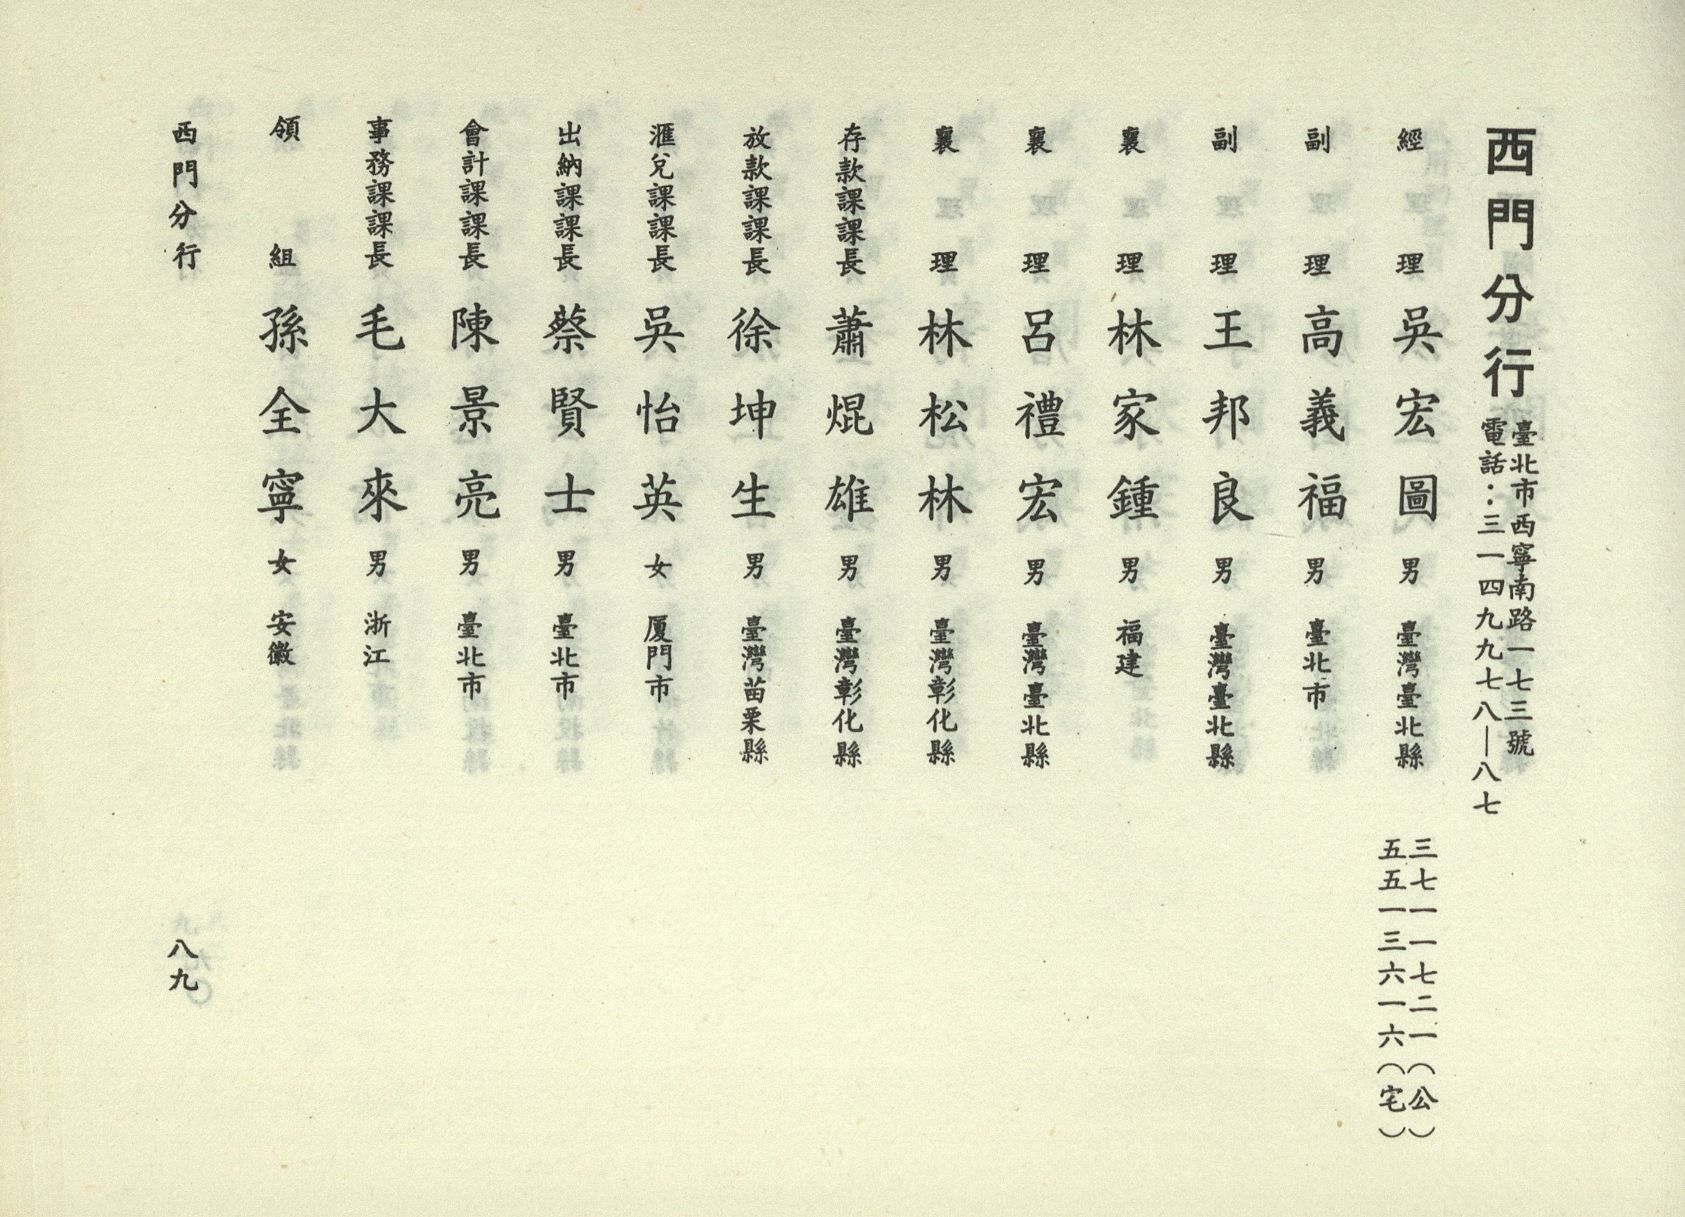 西門分行
臺北市西寧南路一七三號
電話：三一四九九七八—八七
經理 吳宏圖 男 臺灣臺北縣
三七一一七二一（公）
五五一三六一六（宅）
副理 高義福 男 臺北市
副理 王邦良 男 臺灣臺北縣
襄理 林家鍾 男 福建
襄理 呂禮宏 男 臺灣臺北縣
襄理 林松林 男 臺灣彰化縣
存款課課長 蕭焜雄 男 臺灣彰化縣
放款課課長 徐坤生 男 臺灣苗栗縣
滙兌課課長 吳怡英 女 厦門市
出納課課長 蔡賢士 男 臺北市
會計課課長 陳景亮 男 臺北市
事務課課長 毛大來 男 浙江
領組 孫全寧 女 安徽
西門分行
八九